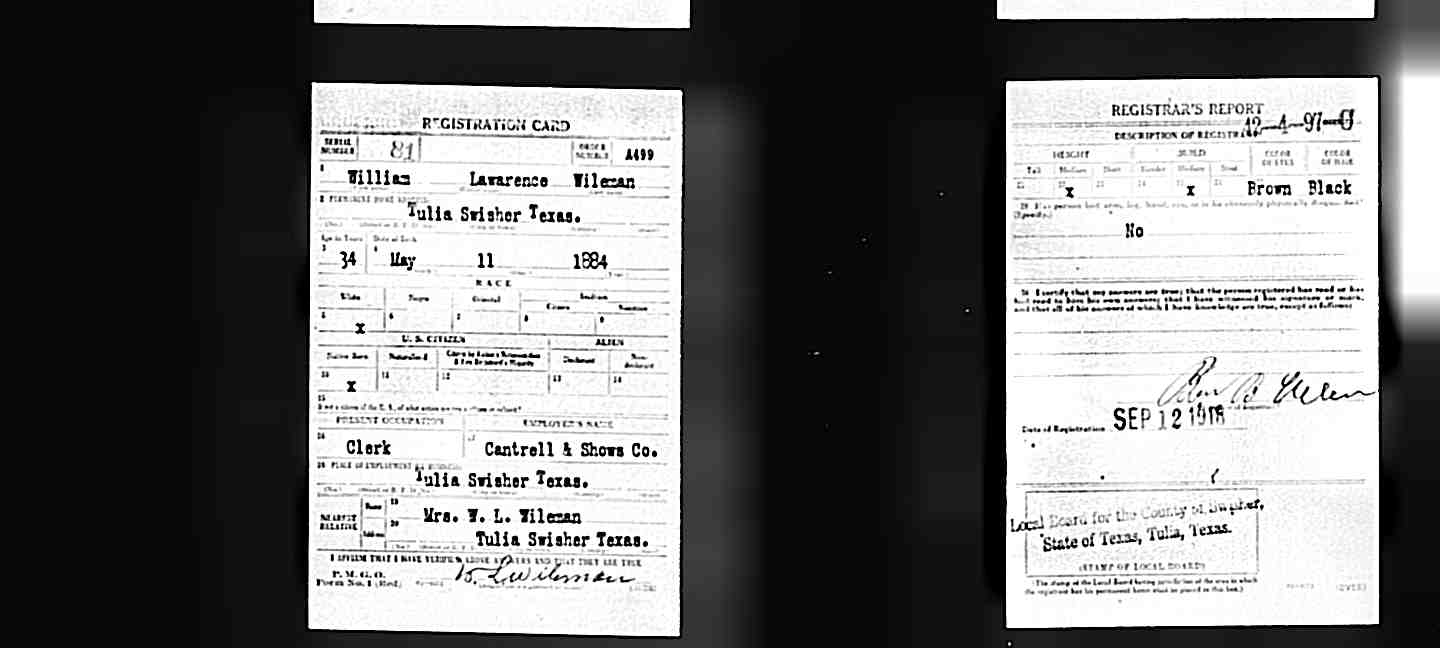 REGISTRATION CARD
SERIAL NUMBER 81 ORDER NUMBER A499
1 William Lawarence Wileman
2 PERMANENT HOME ADDRESS
Tulia Swisher Texas.
Age in Years Date of Birth
3 34 4 May 11 1884
RACE
White Negro Oriental Indian
Citizen
5 x 6 7 8 9
U. S. CITIZEN ALIEN
Native Born Naturalized Declarant Non-declarant
10 x 11 12 13 14
15
PRESENT OCCUPATION EMPLOYER'S NAME
16 Clerk 17 Cantrell & Shows Co.
18 PLACE OF EMPLOYMENT OR BUSINESS
Tulia Swisher Texas.
NEAREST RELATIVE Name 19 Mrs. W. L. Wileman
Address 20 Tulia Swisher Texas.
I AFFIRM THAT I HAVE VERIFIED ABOVE ANSWERS AND THAT THEY ARE TRUE
P. M. G. O.
Form No. 1 (Red) W. L. Wileman
REGISTRAR'S REPORT
42-4-97-C
DESCRIPTION OF REGISTRANT
HEIGHT BUILD COLOR OF EYES COLOR OF HAIR
Tall Medium Short Slender Medium Stout
21 22 x 23 24 25 x 26 Brown Black
29 Has person lost arm, leg, hand, eye, or is he obviously physically disqualified?
(Specify.)
No
30 I certify that my answers are true; that the person registered has read or has
had read to him his own answers; that I have witnessed his signature or mark,
and that all of his answers of which I have knowledge are true, except as follows:
Date of Registration SEP 12 1918
Local Board for the County of Swisher,
State of Texas, Tulia, Texas.
(STAMP OF LOCAL BOARD)
(The stamp of the Local Board having jurisdiction of the area in which
the registrant has his permanent home shall be placed in this box.)